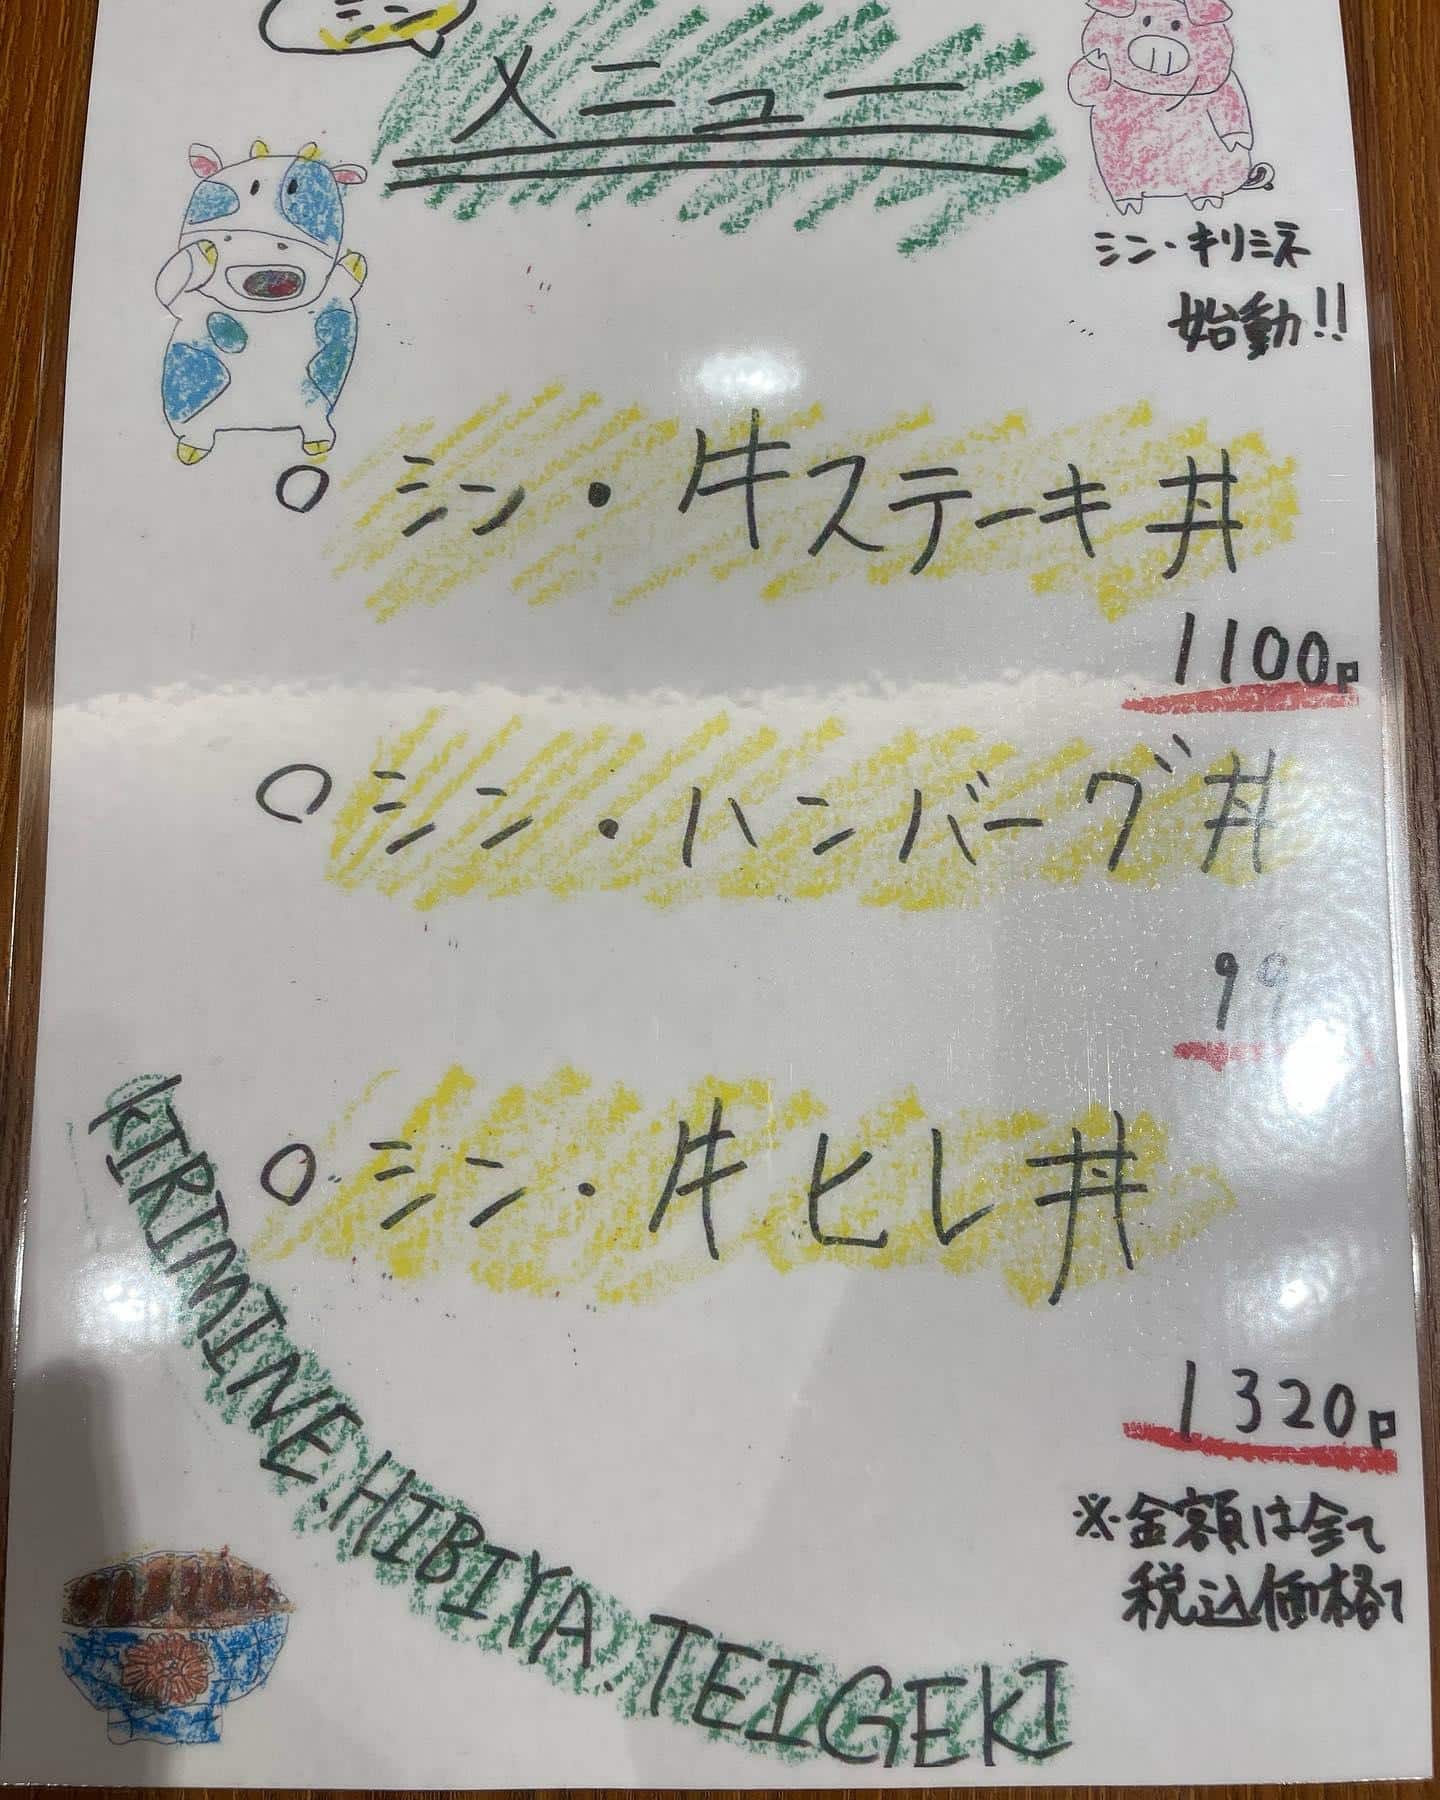 シン
メニュー
シン・キリミネ
始動!!
○ シン・牛ステーキ丼
1100P
○ シン・ハンバーグ丼
99
○ シン・牛ヒレ丼
1320P
※金額は全て
税込価格で
KIRIMINE.HIBIYA.TEIGEKI